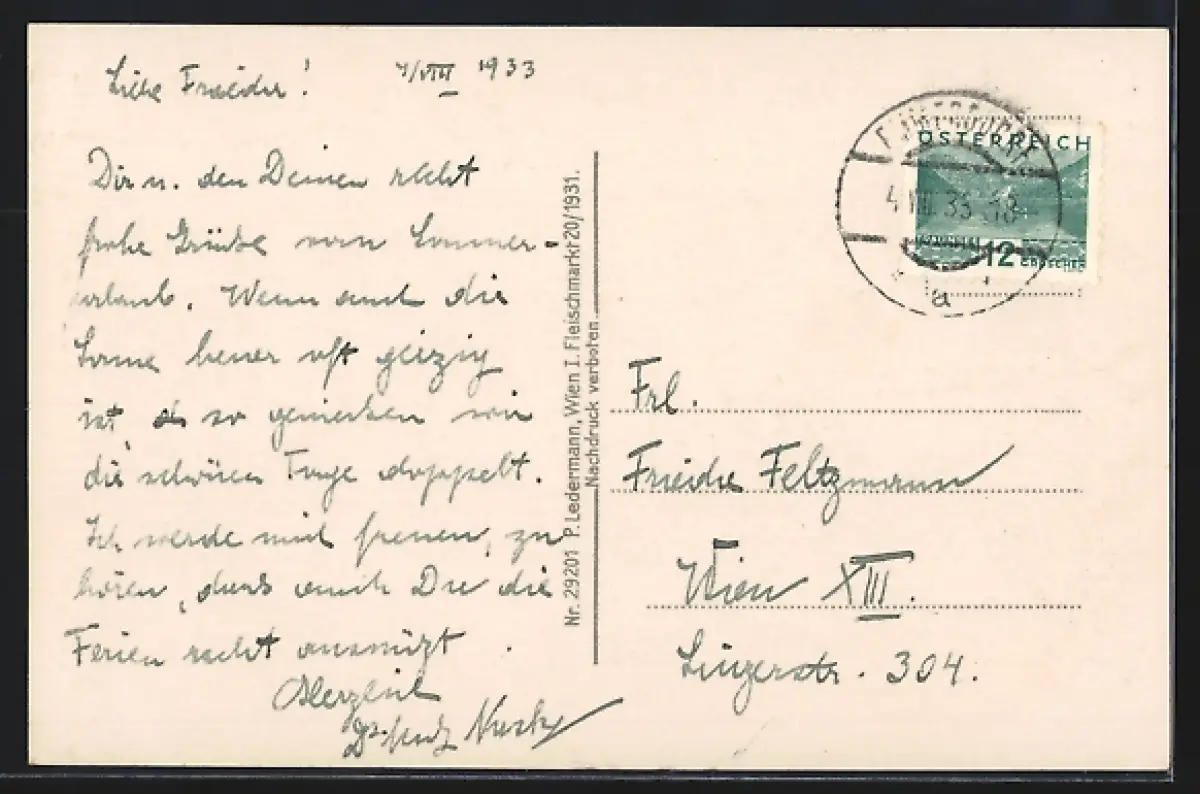 Liebe Friedie!
4/VIII 1933
Dir u. den Deinen recht
frohe Grüße vom Sommer-
urlaub. Wenn auch die
Sonne heuer oft geizig
ist, so genießen wir
die schönen Tage doppelt.
Ich werde mich freuen, zu
hören, dass auch Du die
Ferien recht ausnützt.
Herzlich
Nr. 29201 P. Ledermann, Wien I. Fleischmarkt 20/1931.
Nachdruck verboten.
ÖSTERREICH
12 GROSCHEN
4.VIII.33 18
a
Frl.
Friedie Feltzmann
Wien XIII.
Linzerstr. 304.